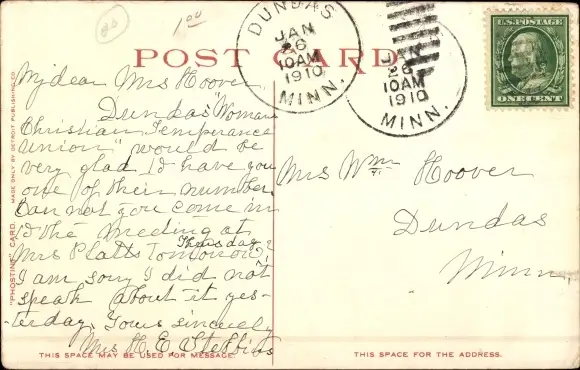 1.00
DUNDAS
JAN
26
10AM
1910
MINN.
JAN
26
10AM
1910
MINN.
U.S. POSTAGE
ONE CENT
POST CARD
My dear Mrs Hoover,
Dundas "Woman's
Christian Temperance
Union" would be
very glad to have you
one of their number.
Can not you come in
to the meeting at
Mrs Platts Tomorrow, Thursday?
I am sorry I did not
speak about it yes-
-terday. Yours sincerely
Mrs H. E. Stebbins
Mrs Wm Hoover
Dundas
Minn.
"PHOSTINT" CARD
MADE ONLY BY DETROIT PUBLISHING CO.
THIS SPACE MAY BE USED FOR MESSAGE.
THIS SPACE FOR THE ADDRESS.